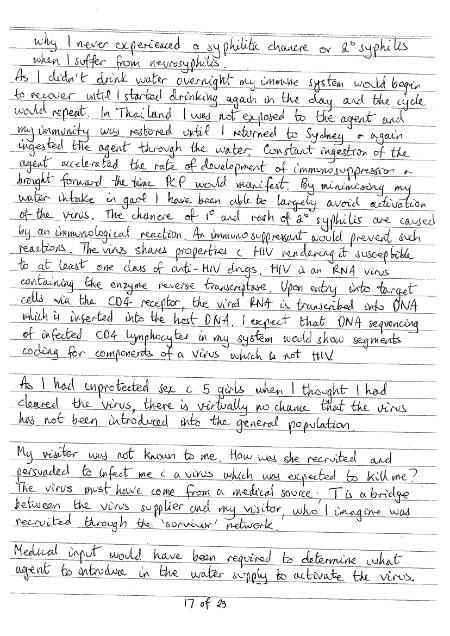 why I never experienced a syphilitic chancre or 2° syphilis
when I suffer from neurosyphilis.
As I didn't drink water overnight my immune system would begin
to recover until I started drinking again in the day and the cycle
would repeat. In Thailand I was not exposed to the agent and
my immunity was restored until I returned to Sydney & again
ingested the agent through the water. Constant ingestion of the
agent accelerated the rate of development of immunosuppression &
brought forward the time PCP would manifest. By minimising my
water intake in gaol I have been able to largely avoid activation
of the virus. The chancre of 1° and rash of 2° syphilis are caused
by an immunological reaction. An immunosuppressant would prevent such
reactions. The virus shares properties c HIV rendering it susceptible
to at least one class of anti-HIV drugs. HIV is an RNA virus
containing the enzyme reverse transcriptase. Upon entry into target
cells via the CD4 receptor, the viral RNA is transcribed into DNA
which is inserted into the host DNA. I expect that DNA sequencing
of infected CD4 lymphocytes in my system would show segments
coding for components of a virus which is not HIV.
As I had unprotected sex c 5 girls when I thought I had
cleared the virus, there is virtually no chance that the virus
has not been introduced into the general population.
My visitor was not known to me. How was she recruited and
persuaded to infect me c a virus which was expected to kill me?
The virus must have come from a medical source; T is a bridge
between the virus supplier and my visitor, who I imagine was
recruited through the 'survivor' network.
Medical input would have been required to determine what
agent to introduce in the water supply to activate the virus.
17 of 23